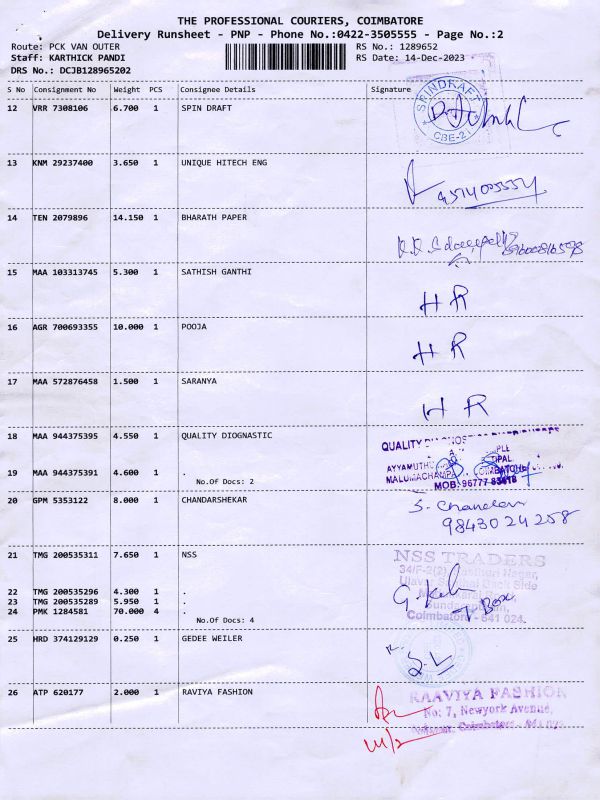 THE PROFESSIONAL COURIERS, COIMBATORE
Delivery Runsheet - PNP - Phone No.:0422-3505555 - Page No.:2
Route: PCK VAN OUTER RS No.: 1289652
Staff: KARTHICK PANDI RS Date: 14-Dec-2023
DRS No.: DCJB128965202
S No Consignment No Weight PCS Consignee Details Signature
12 VRR 7308106 6.700 1 SPIN DRAFT
SPINDRAFT
CBE-21
13 KNM 29237400 3.650 1 UNIQUE HITECH ENG
14 TEN 2079896 14.150 1 BHARATH PAPER
15 MAA 103313745 5.300 1 SATHISH GANTHI
H R
16 AGR 700693355 10.000 1 POOJA
H R
17 MAA 572876458 1.500 1 SARANYA
H R
18 MAA 944375395 4.550 1 QUALITY DIOGNASTIC
QUALITY
19 MAA 944375391 4.600 1 .
No.Of Docs: 2
20 GPM 5353122 8.000 1 CHANDARSHEKAR
S. Chandar
9843024258
21 TMG 200535311 7.650 1 NSS
NSS TRADERS
22 TMG 200535296 4.300 1 .
23 TMG 200535289 5.950 1 .
24 PMK 1284581 70.000 4 .
7 Box
No.Of Docs: 4
Coimbatore - 641 024.
25 HRD 374129129 0.250 1 GEDEE WEILER
26 ATP 620177 2.000 1 RAVIYA FASHION
RAAVIYA FASHION
No: 7, Newyork Avenue,